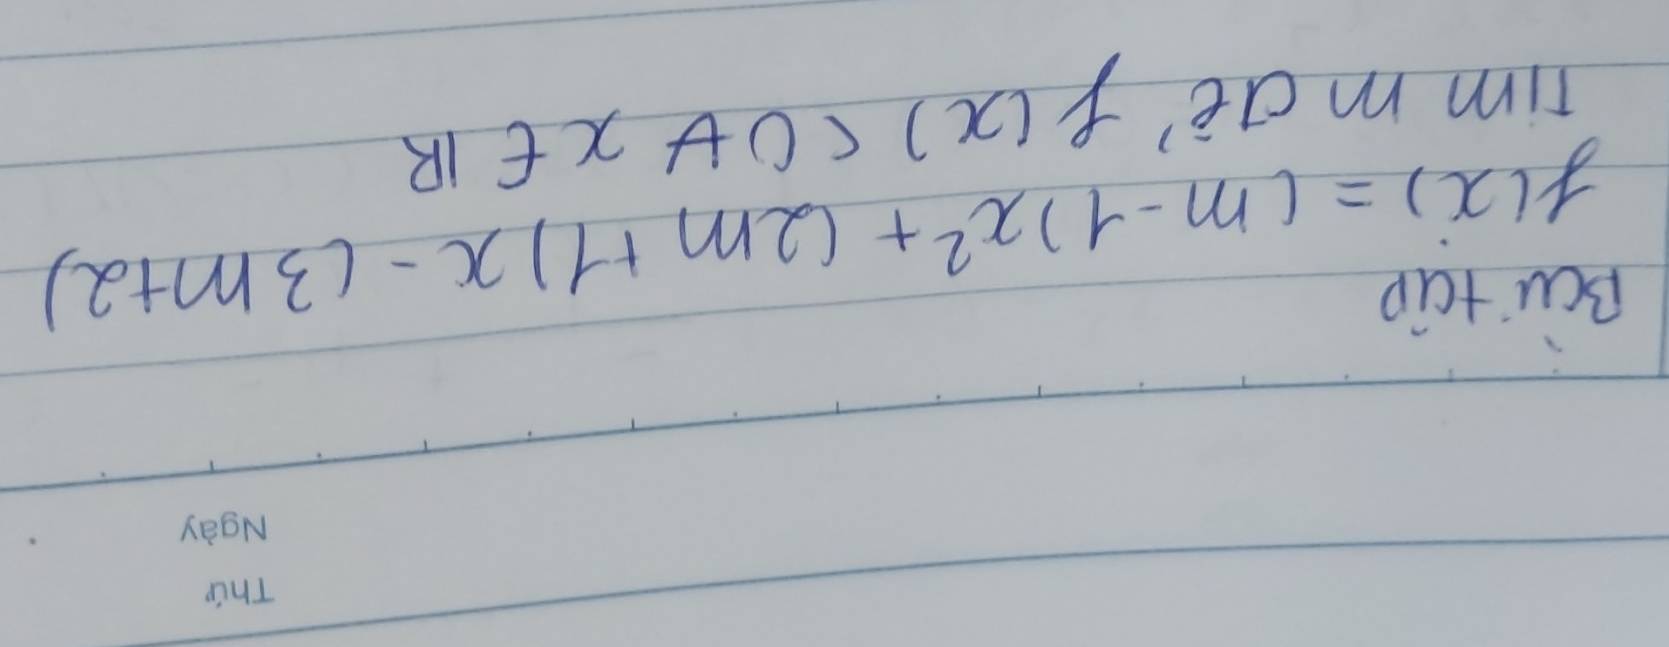 Thứ
Ngày
Bài tập
f(x) = (m-1)x² + (2m+1)x - (3m+2)
Tìm m để f(x) < 0 ∀ x ∈ ℝ